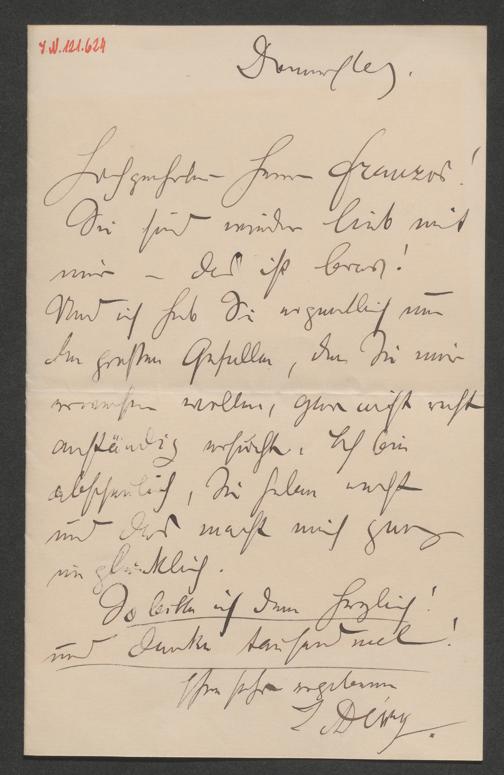 I.N. 121.624
Donnerstag.
Hochgeehrter Herr Franzos!
Sie sind wieder lieb mit
mir – das ist brav!
Und ich hab Sie eigentlich um
den großen Gefallen, den Sie mir
erweisen wollen, gar nicht recht
anständig ersucht. Ich bin
abscheulich, Sie haben recht
und das macht mich ganz
unglücklich.
So bitte ich denn herzlich!
und danke tausend mal!
Ihr sehr ergebener